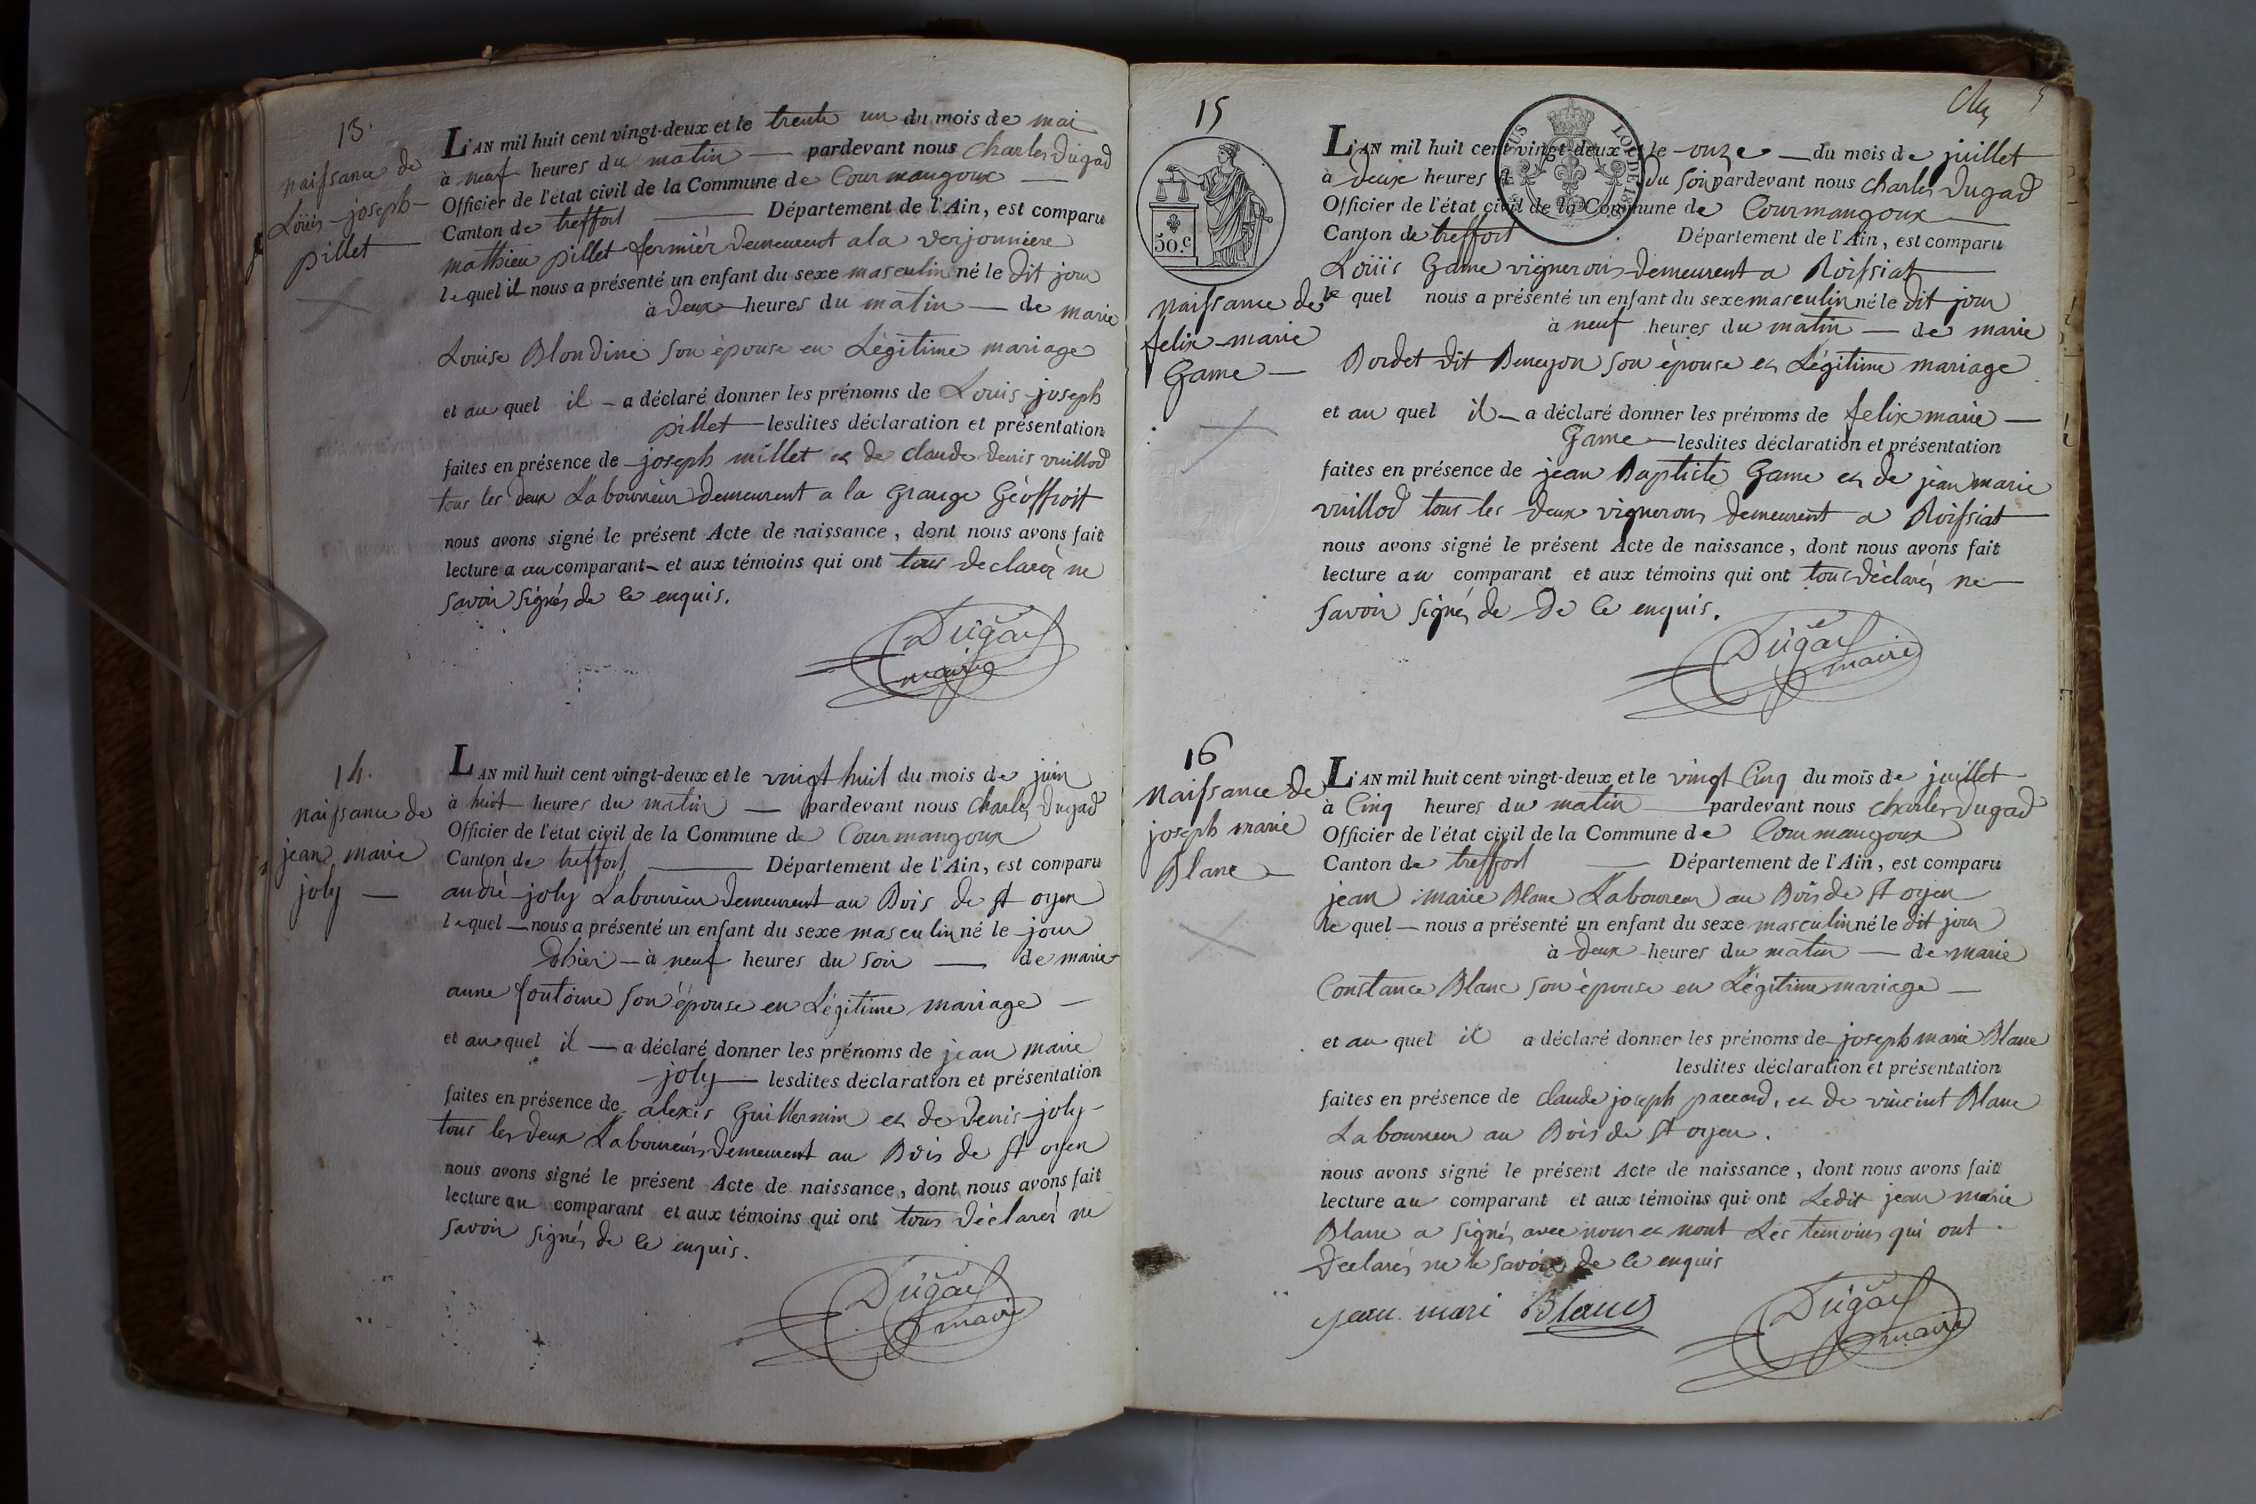 13.
naissance de
Loüis-joseph-
pillet
L'AN mil huit cent vingt-deux et le trente un du mois de mai
à neuf heures du matin — pardevant nous charles Dugad
Officier de l'état civil de la Commune de Courmangoux
Canton de treffort — Département de l'Ain, est comparu
mathieu pillet fermier demeurent a la verjonniere
lequel il nous a présenté un enfant du sexe masculin né le dit jour
à deux heures du matin — de marie
Louise Blondine son épouse en Légitime mariage
et au quel il — a déclaré donner les prénoms de Louis-joseph
pillet — lesdites déclaration et présentation
faites en présence de joseph millet et de claude denis vuillod
tous les deux Laboureur demeurent a la Grange Géoffroit
nous avons signé le présent Acte de naissance, dont nous avons fait
lecture a au comparant et aux témoins qui ont tous declaré ne
savoir signés de ce enquis.
Dugad
maire
14.
naissance de
jean marie
joly —
L'AN mil huit cent vingt-deux et le vingt huit du mois de juin
à huit heures du matin — pardevant nous charles Dugad
Officier de l'état civil de la Commune de Courmangoux
Canton de treffort — Département de l'Ain, est comparu
andré joly Laboureur demeurent au Bois de st oyen
lequel — nous a présenté un enfant du sexe masculin né le jour
d'hier — à neuf heures du soir — de marie
anne fontaine son épouse en Légitime mariage —
et au quel il — a déclaré donner les prénoms de jean marie
joly — lesdites déclaration et présentation
faites en présence de alexis Guillermin et de Denis joly
tous les deux Laboureurs demeurent au Bois de st oyen
nous avons signé le présent Acte de naissance, dont nous avons fait
lecture au comparant et aux témoins qui ont tous déclaré ne
savoir signés de ce enquis.
Dugad
maire
5
15
50.c
naissance de
felix-marie
Game —
L'AN mil huit cent vingt-deux et le onze — du mois de juillet
à deux heures du soir pardevant nous charles Dugad
Officier de l'état civil de la Commune de Courmangoux
Canton de treffort Département de l'Ain, est comparu
Loüis Game vigneron demeurent a Roissiat
le quel nous a présenté un enfant du sexe masculin né le dit jour
à neuf heures du matin — de marie
Bordet dit Beneyon son épouse en Légitime mariage
et au quel il — a déclaré donner les prénoms de felix marie —
Game — lesdites déclaration et présentation
faites en présence de jean Baptiste Game et de jean marie
vuillod tous les deux vignerons demeurent a Roissiat
nous avons signé le présent Acte de naissance, dont nous avons fait
lecture au comparant et aux témoins qui ont tous déclarés ne
savoir signés de de ce enquis.
Dugad
maire
16
naissance de
joseph marie
Blanc —
L'AN mil huit cent vingt-deux et le vingt Cinq du mois de juillet
à Cinq heures du matin pardevant nous charles Dugad
Officier de l'état civil de la Commune de Courmangoux
Canton de treffort — Département de l'Ain, est comparu
jean marie Blanc Laboureur au Bois de st oyen
le quel — nous a présenté un enfant du sexe masculin né le dit jour
à deux heures du matin — de marie
Constance Blanc son épouse en Légitime mariage —
et au quel il a déclaré donner les prénoms de joseph marie Blanc
lesdites déclaration et présentation
faites en présence de claude joseph paccoud, et de vincint Blanc
Laboureur au Bois de st oyen.
nous avons signé le présent Acte de naissance, dont nous avons fait
lecture au comparant et aux témoins qui ont Ledit jean marie
Blanc a signés avec nous et nont Les temoins qui ont
Declarés ne le savoir de ce enquis
jean mari Blanc
Dugad
maire